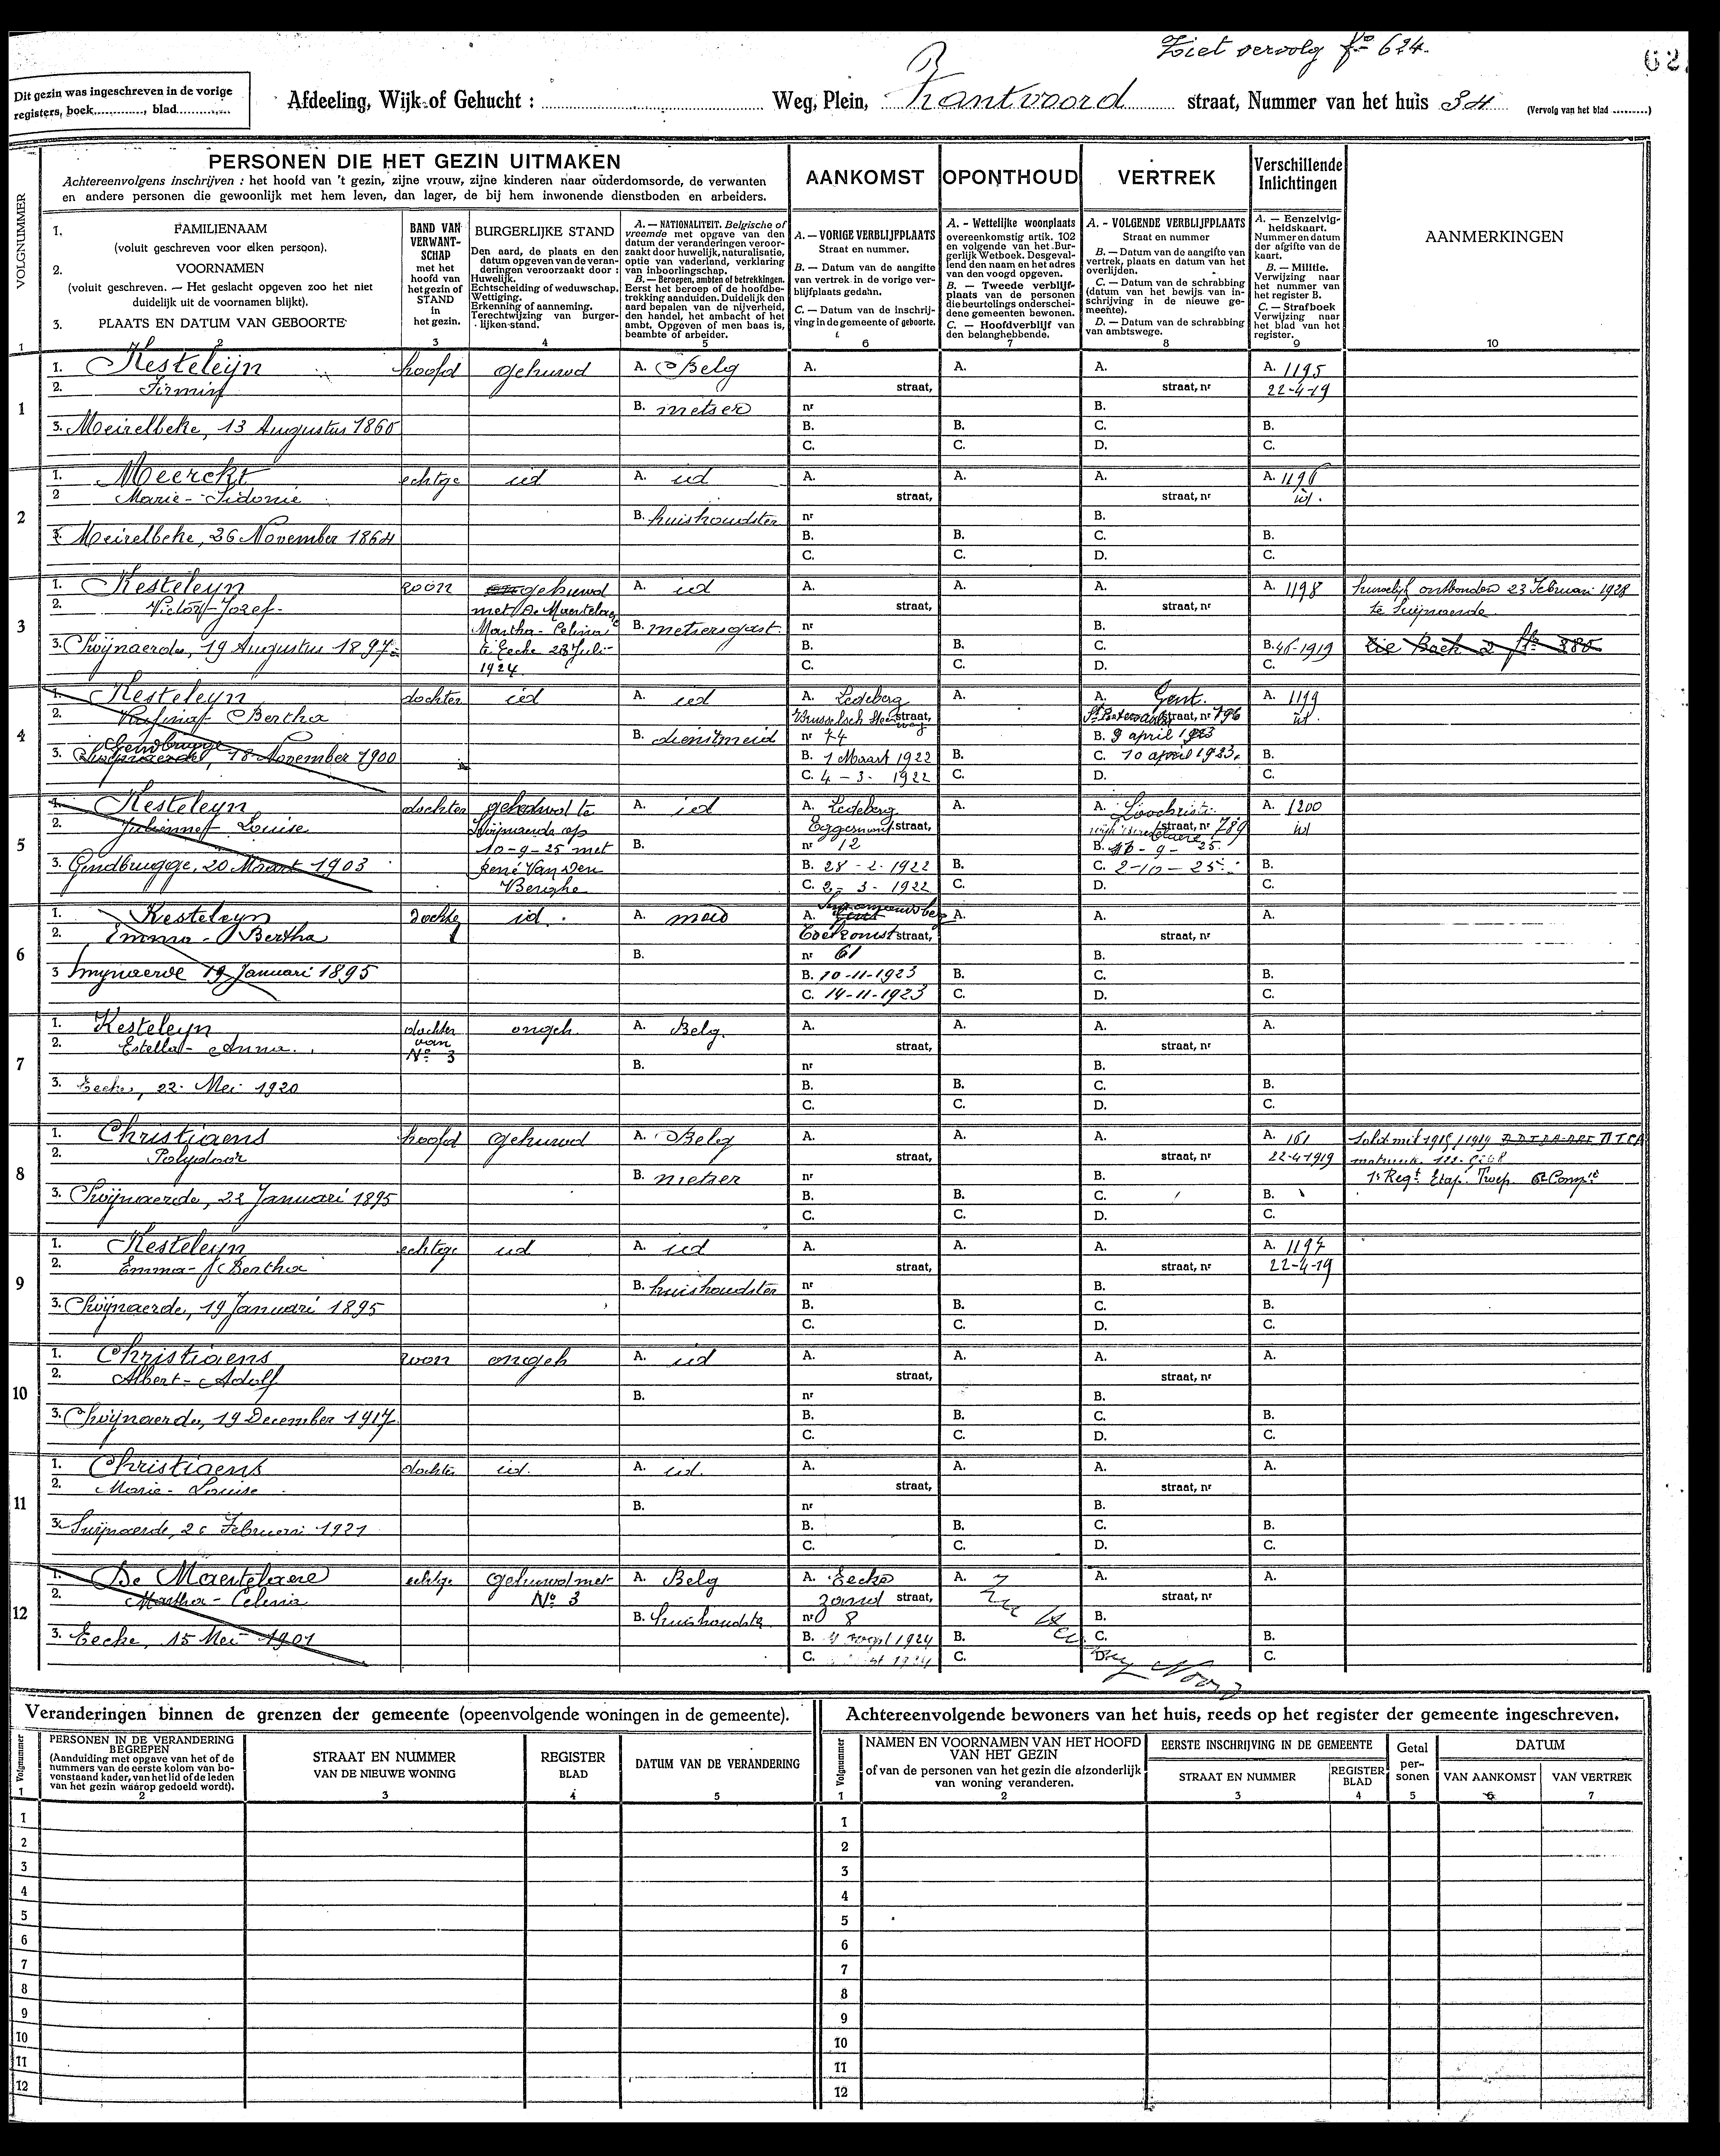 Ziet vervolg fo 624.
62
Dit gezin was ingeschreven in de vorige
registers, boek............, blad............
Afdeeling, Wijk of Gehucht : ............ Weg, Plein, Zantvoord straat, Nummer van het huis 34 (Vervolg van het blad .........)
VOLGNUMMER
PERSONEN DIE HET GEZIN UITMAKEN
Achtereenvolgens inschrijven : het hoofd van 't gezin, zijne vrouw, zijne kinderen naar ouderdomsorde, de verwanten
en andere personen die gewoonlijk met hem leven, dan lager, de bij hem inwonende dienstboden en arbeiders.
AANKOMST
OPONTHOUD
VERTREK
Verschillende
Inlichtingen
1. FAMILIENAAM
(voluit geschreven voor elken persoon).
2. VOORNAMEN
(voluit geschreven. — Het geslacht opgeven zoo het niet
duidelijk uit de voornamen blijkt).
3. PLAATS EN DATUM VAN GEBOORTE
BAND VAN
VERWANT-
SCHAP
met het
hoofd van
het gezin of
STAND
in
het gezin.
BURGERLIJKE STAND
Den aard, de plaats en den
datum opgeven van de veran-
deringen veroorzaakt door :
Huwelijk.
Echtscheiding of weduwschap.
Wettiging.
Erkenning of aanneming.
Terechtwijzing van burger-
lijken stand.
A. — NATIONALITEIT. Belgische of
vreemde met opgave van den
datum der veranderingen veroor-
zaakt door huwelijk, naturalisatie,
optie van vaderland, verklaring
van inboorlingschap.
B. — Beroepen, ambten of betrekkingen.
Eerst het beroep of de hoofdbe-
trekking aanduiden. Duidelijk den
aard bepalen van de nijverheid,
den handel, het ambacht of het
ambt. Opgeven of men baas is,
beambte of arbeider.
A. — VORIGE VERBLIJFPLAATS
Straat en nummer.
B. — Datum van de aangifte
van vertrek in de vorige ver-
blijfplaats gedahn.
C. — Datum van de inschrij-
ving in de gemeente of geboorte.
A. - Wettelijke woonplaats
overeenkomstig artik. 102
en volgende van het Bur-
gerlijk Wetboek. Desgeval-
lend den naam en het adres
van den voogd opgeven.
B. — Tweede verblijf-
plaats van de personen
die beurtelings onderschei-
dene gemeenten bewonen.
C. — Hoofdverblijf van
den belanghebbende.
A. - VOLGENDE VERBLIJFPLAATS
Straat en nummer
B. — Datum van de aangifte van
vertrek, plaats en datum van het
overlijden.
C. — Datum van de schrabbing
(datum van het bewijs van in-
schrijving in de nieuwe ge-
meente).
D. — Datum van de schrabbing
van ambtswege.
A. — Eenzelvig-
heidskaart.
Nummer en datum
der afgifte van de
kaart.
B. — Militie.
Verwijzing naar
het nummer van
het register B.
C. — Strafboek
Verwijzing naar
het blad van het
register.
AANMERKINGEN
1 2 3 4 5 6 7 8 9 10
1
1. Kesteleyn hoofd gehuwd A. Belg A. A. A. A. 1195
2. Firmin straat, straat, nr 22-4-19
B. metser nr B.
3. Meirelbeke, 13 Augustus 1860 B. B. C. B.
C. C. D. C.
2
1. Meerckt echtge id A. id A. A. A. A. 1196
2 Marie-Sidonie straat, straat, nr id.
B. huishoudster nr B.
3. Meirelbeke, 26 November 1864 B. B. C. B.
C. C. D. C.
3
1. Kesteleyn zoon gehuwd A. id A. A. A. A. 1198 huwelijk ontbonden 23 Februari 1928
2. Victor-Jozef met De Maertelaere straat, straat, nr te Swijnaerde
Martha-Celina B. metsersgast. nr B.
3. Swijnaerde, 19 Augustus 1897 te Eecke 28 Juli B. B. C. B. 46-1919 Zie Boek 2 fo 380
1924 C. C. D. C.
4
1. Kesteleyn dochter id A. id A. Ledeberg A. A. Gent. A. 1199
2. Bertha Brusselsch Steenweg straat, straat, nr 796 id.
B. dienstmeid nr 74 B. 9 april 1923
3. Gendbrugge Swijnaerde, 18 November 1900 B. 1 Maart 1922 B. C. 10 april 1923. B.
C. 4-3-1922 C. D. C.
5
1. Kesteleyn dochter gehuwd te A. id A. Ledeberg A. A. Loochristi A. 1200
2. Julienne Louise Swijnaerde op Eggermont straat, straat, nr 789 id
10-9-25 met B. nr 12 B. 16-9-25.
3. Gendbrugge, 20 Maart 1903 René Van den B. 28-2-1922 B. C. 2-10-25. B.
Berghe C. 2-3-1922 C. D. C.
6
1. Kesteleyn dochter id. A. meid A. Gent A. A. A.
2. Emma-Bertha Toekomst straat, straat, nr
B. nr 61 B.
3 Swynaerde 19 Januari 1895 B. 10-11-1923 B. C. B.
C. 14-11-1923 C. D. C.
7
1. Kesteleyn dochter ongeh. A. Belg. A. A. A. A.
2. Estella-Anna. van straat, straat, nr
No 3 B. nr B.
3. Eecke, 22 Mei 1920 B. B. C. B.
C. C. D. C.
8
1. Christiaens hoofd gehuwd A. Belg A. A. A. A. 161
2. Polydoor straat, straat, nr 22-4-1919
B. metser nr B. 1e Regt. Etap. Troep. 6e Compie
3. Swijnaerde, 23 Januari 1895 B. B. C. B.
C. C. D. C.
9
1. Kesteleyn echtge id A. id A. A. A. A. 1197
2. Emma-Bertha straat, straat, nr 22-4-19
B. huishoudster nr B.
3. Swijnaerde, 19 Januari 1895 B. B. C. B.
C. C. D. C.
10
1. Christiaens zoon ongeh A. id A. A. A. A.
2. Albert-Adolf straat, straat, nr
B. nr B.
3. Swijnaerde, 19 December 1917 B. B. C. B.
C. C. D. C.
11
1. Christiaens dochter id. A. id. A. A. A. A.
2. Marie-Louise straat, straat, nr
B. nr B.
3. Swijnaerde, Februari 1921 B. B. C. B.
C. C. D. C.
12
1. De Maertelaere echtge Gehuwd met A. Belg A. Eecke A. A. A.
2. Martha-Celina No 3 zand straat, straat, nr
B. huishoudster nr 8 B.
3. Eecke, 15 Mei 1901 B. 1924 B. C. B.
C. 1924 C. D. C.
Veranderingen binnen de grenzen der gemeente (opeenvolgende woningen in de gemeente).
Achtereenvolgende bewoners van het huis, reeds op het register der gemeente ingeschreven.
Volgnummer
PERSONEN IN DE VERANDERING
BEGREPEN
(Aanduiding met opgave van het of de
nummers van de eerste kolom van bo-
venstaand kader, van het lid of de leden
van het gezin waarop gedoeld wordt).
STRAAT EN NUMMER
VAN DE NIEUWE WONING
REGISTER
BLAD
DATUM VAN DE VERANDERING
1 2 3 4 5
Volgnummer
NAMEN EN VOORNAMEN VAN HET HOOFD
VAN HET GEZIN
of van de personen van het gezin die afzonderlijk
van woning veranderen.
EERSTE INSCHRIJVING IN DE GEMEENTE
STRAAT EN NUMMER
REGISTER
BLAD
Getal
per-
sonen
DATUM
VAN AANKOMST
VAN VERTREK
1 2 3 4 5 6 7
1 1
2 2
3 3
4 4
5 5
6 6
7 7
8 8
9 9
10 10
11 11
12 12